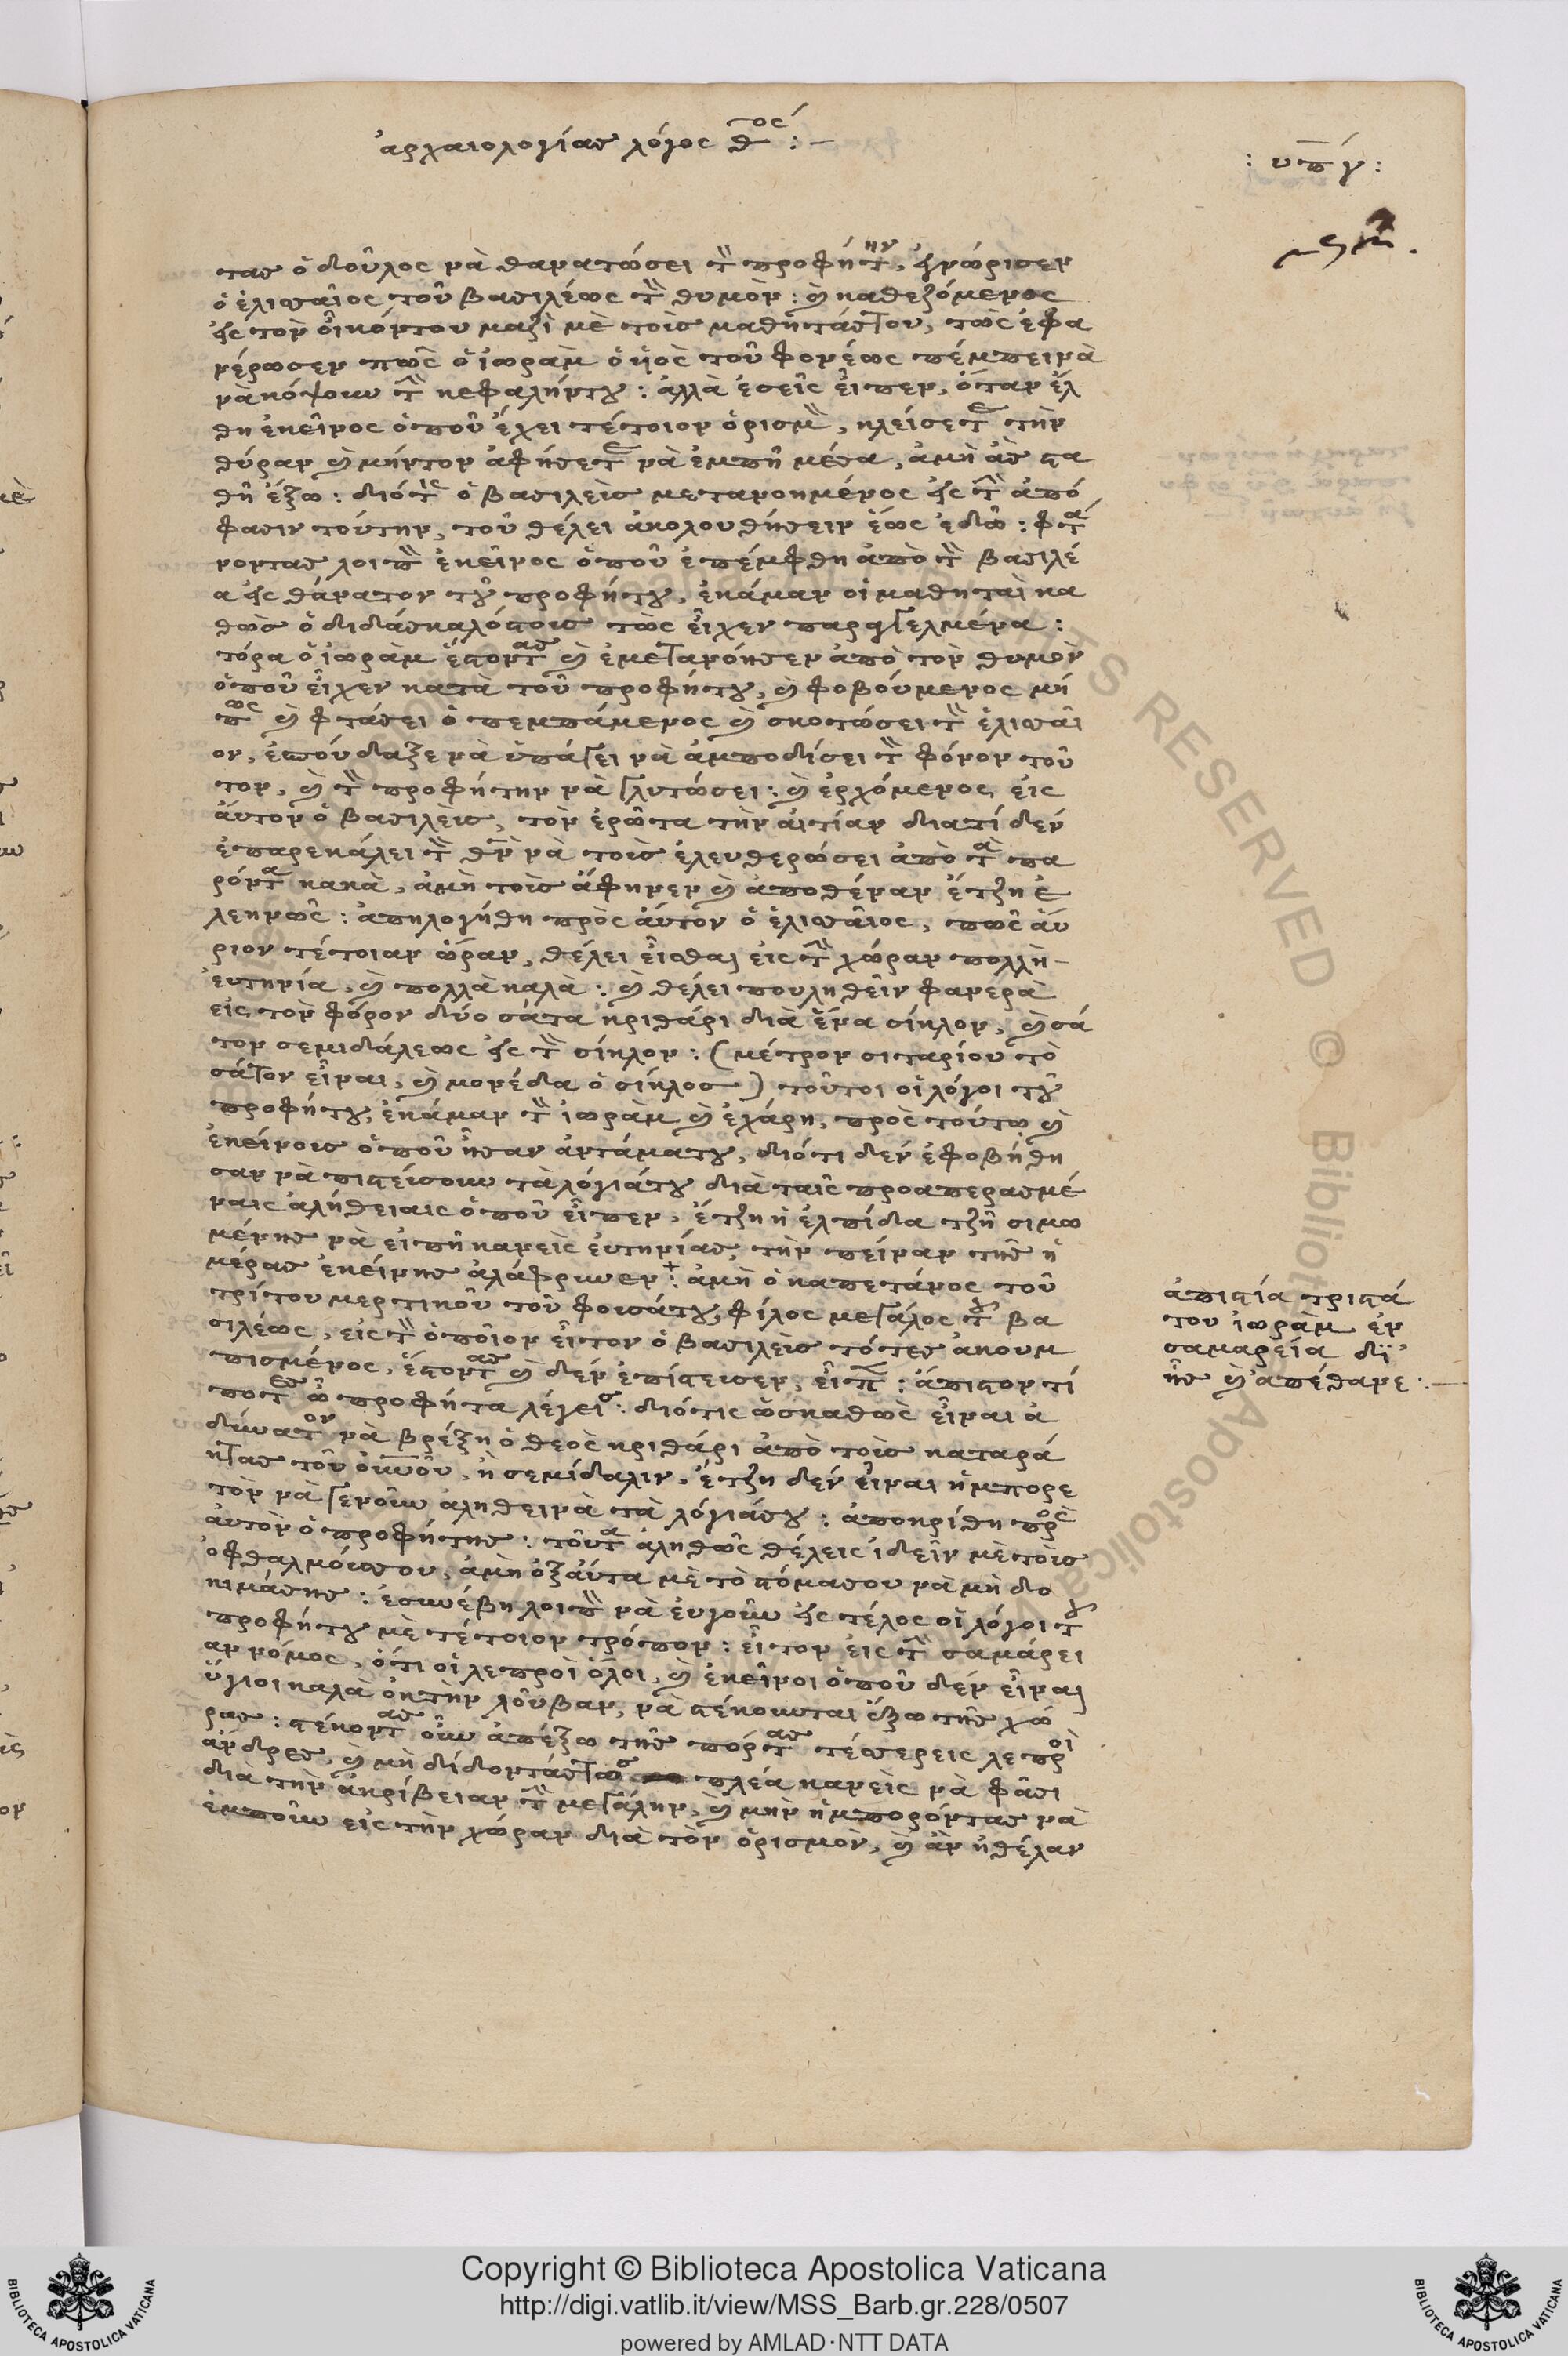 ἀρχαιολογίας λόγος θος :—
: υπγ :
τας ὁ δοῦλος νὰ θανατώσει τὸν προφήτην, ἐγνώρισεν
ὁ ἐλισσαῖος τοῦ βασιλέως τὸν θυμὸν : καὶ καθεζόμενος
εἰς τὸν οἶκόντου μαζὶ μὲ τοὺς μαθητάςτου, τῶς ἐφα
νέρωσεν πῶς ὁ ἰωρὰμ ὁ ὑιὸς τοῦ φονέως πέμπει νὰ
νὰ κόψουν τὴν κεφαλήντου : ἀλλὰ ἐσεῖς εἶπεν, ὅταν ἔλ
θη ἐκεῖνος ὁποῦ ἔχει τέτοιον ὁρισμὸν, κλείσετε τὴν
θύραν καὶ μήντον ἀφήσετε νὰ ἐμπῆ μέσα, ἀμὴ ἀς στα
θῆ ἔξω : διότι ὁ βασιλεὺς μετανοημένος εἰς τὴν ἀπό
φασιν τούτην, τοῦ θέλει ἀκολουθήσειν ἕως ἐδῶ : φτά
νοντας λοιπὸν ἐκεῖνος ὁποῦ ἐπέμφθη ἀπὸ τὸν βασιλέ
α εἰς θάνατον τοῦ προφήτου, ἐκάμαν οἱ μαθηταὶ κα
θὼς ὁ διδάσκαλόςτους τῶς εἶχεν παραγγελμένα :
τόρα ὁ ἰωρὰμ ἔστοντας καὶ ἐμετανόησεν ἀπὸ τὸν θυμὸν
ὁποῦ εἶχεν κατὰ τοῦ προφήτου, καὶ φοβούμενος μή
πως καὶ φτάσει ὁ πεμπάμενος καὶ σκοτώσει τὸν ἐλισσαῖ
ον, ἐσπούδαξε νὰ ὑπάγει νὰ ἀμποδίσει τὸν φόνον τοῦ
τον, καὶ τὸν προφήτην νὰ γλυτώσει : καὶ ἐρχόμενος εἰς
ἀυτον ὁ βασιλεὺς, τὸν ἐρῶτα τὴν ἀιτίαν διατί δέν
ἐπαρεκάλει τὸν θν νὰ τοὺς ἐλευθερώσει ἀπὸ τὰ πα
ρόντα κακὰ, ἀμὴ τοὺς ἄφηνεν καὶ ἀποθέναν ἔτζη ἐ
λεηνῶς : ἀπηλογήθη πρὸς ἀυτὸν ὁ ἐλισσαῖος, πῶς ἀύ
ριον τέτοιαν ὥραν, θέλει εἶσθαι εἰς τὴν χώραν πολλὴ
ἐυτηνία, καὶ πολλὰ καλὰ : καὶ θέλει πουληθεῖν φανερὰ
εἰς τὸν φόρον δύο σάτα κριθάρι διὰ ἕνα σίκλον, καὶ σά
τον σεμιδάλεως εἰς τὸν σίκλον : (μέτρον σιταρίου τὸ
σάτον εἶναι, καὶ μονέδα ὁ σίκλος) τοῦτοι οἱ λόγοι τοῦ
προφήτου, ἐκάμαν τὸν ἰωρὰμ καὶ ἐχάρη, πρὸς τούτω καὶ
ἐκείνους ὁποῦ ἦσαν ἀντάματου, διότι δέν ἐφοβήθη
σαν νὰ πιστεύσουν τὰ λόγιάτου διὰ ταῖς προαπερασμέ
ναις ἀλήθειαις ὁποῦ εἶπεν, ἔτζη ἡ ἐλπίδα τζῆ σιμω
μένης νὰ εἰπῆ κανεὶς ἐυτηνίας, τὴν πείναν τῆς ἡ
μέρας ἐκείνης ἀλάφρυνεν + : ἀμὴ ὁ καπετάνος τοῦ
τρίτου μερτικοῦ τοῦ φουσάτου, φίλος μεγάλος τοῦ βα
σιλέως, εἰς τὸν ὁποῖον εἶτον ὁ βασιλεὺς τότες ἀκουμ
πισμένος, ἔστοντας καὶ δὲν ἐπίστευσεν, εἶπε : ἄπιστον τί
ποτες ὦ προφήτα λέγεις : διότις ὡσκαθὼς εἶναι ἀ
δύνατον νὰ βρέξη ὁ θεὸς κριθάρι ἀπὸ τοὺς καταρά
κτας τοῦ οὐνοῦ, ἢ σεμίδαλιν, ἔτζη δέν εἶναι ἠμπορε
τὸν νὰ γενοῦν ἀληθεινὰ τὰ λόγιάσου : ἀποκρίθη πρὸς
ἀυτὸν ὁ προφήτης : τοῦτα ἀληθῶς θέλεις ἰδεῖν μὲ τοὺς
ὀφθαλμούςσου, ἀμὴ ὀξάυτα μὲ τὸ στόμασου νὰ μὴ δο
κιμάσης : ἐσυνέβη λοιπὸν νὰ ἐυγοῦν εἰς τέλος οἱ λόγοι τοῦ
προφήτου μὲ τέτοιον τρόπον : εἶτον εἰς τὴν σαμάρει
αν νόμος, ὅτι οἱ λεπροὶ ὅλοι, καὶ ἐκεῖνοι ὁποῦ δὲν εἶναι
ὕγιοι καλὰ ὀκτὴν λοῦβαν, νὰ στέκουνται ἔξω τῆς χώ
ρας : στέκοντας οὖν ἀπέξω τῆς πόρτας τέσσερεις λεπροὶ
ἄνδρες, καὶ μὴ δίδοντάςτως πλέα κανεὶς νὰ φᾶσι
διὰ τὴν ἀκρίβειαν τὴν μεγάλην, καὶ μὴν ἠμπορόντας νὰ
ἐμποῦν εἰς τὴν χώραν διὰ τὸν ὁρισμὸν, καὶ ἂν ἠθέλαν
ἀπιστία τριστά
του ἰωρὰμ ἐν
σαμαρεία δϊ'
ἧς καὶ ἀπέθανε :—
Copyright © Biblioteca Apostolica Vaticana
http://digi.vatlib.it/view/MSS_Barb.gr.228/0507
powered by AMLAD·NTT DATA
BIBLIOTECA APOSTOLICA VATICANA
BIBLIOTECA APOSTOLICA VATICANA